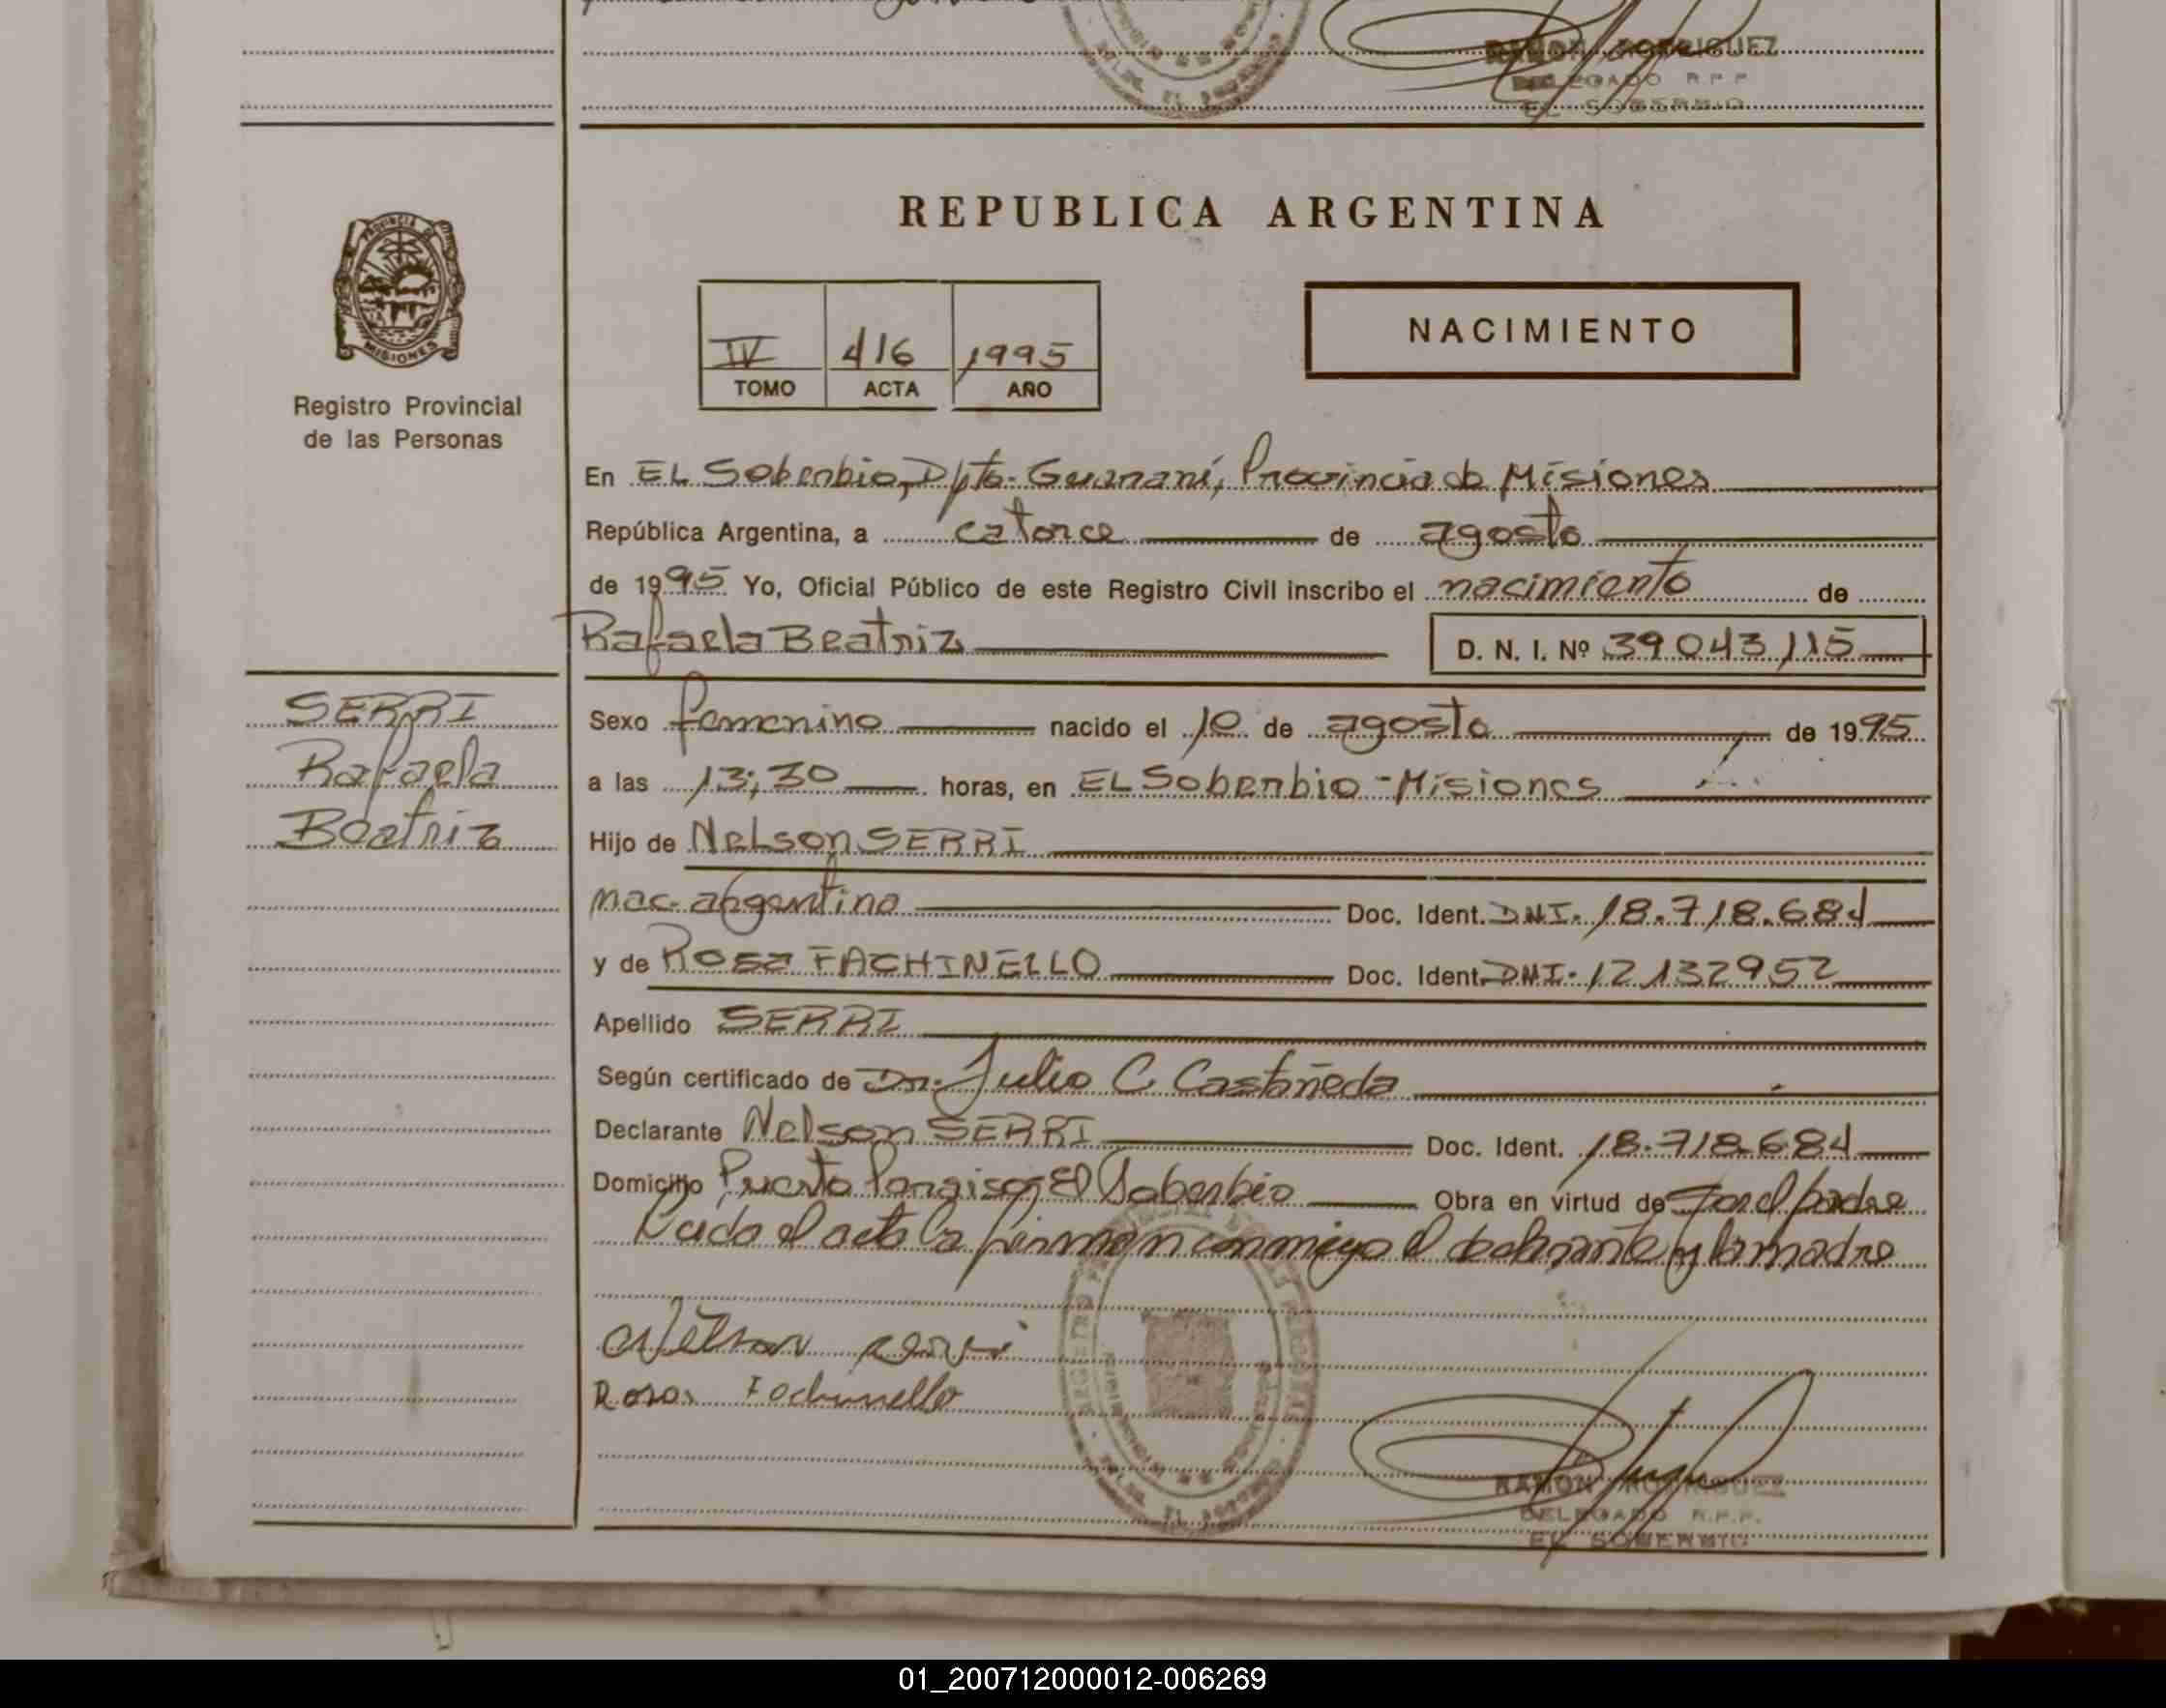 RAMON RODRIGUEZ
DELEGADO R.P.P.
EL SOBERBIO
REPUBLICA ARGENTINA
PROVINCIA DE
MISIONES
Registro Provincial
de las Personas
IV 416 1995
TOMO ACTA AÑO
NACIMIENTO
En EL Soberbio, Dpto. Guaraní, Provincia de Misiones
República Argentina, a catorce de agosto
de 1995 Yo, Oficial Público de este Registro Civil inscribo el nacimiento de
Rafaela Beatriz D. N. I. Nº 39043115
SERRI
Rafaela
Beatriz
Sexo femenino nacido el 10 de agosto de 1995
a las 13;30 horas, en EL Soberbio - Misiones
Hijo de Nelson SERRI
nac. argentino Doc. Ident. DNI. 18.718.684
y de Rosa FACHINELLO Doc. Ident. DNI. 12132952
Apellido SERRI
Según certificado de Dr. Julio C. Castañeda
Declarante Nelson SERRI Doc. Ident. 18.718.684
Domicilio Puerto El Soberbio Obra en virtud de ser el padre
Leída el acta la firman conmigo el declarante y la madre
Nelson Serri
Rosa Fachinello
RAMON RODRIGUEZ
DELEGADO R.P.P.
EL SOBERBIO
01_200712000012-006269